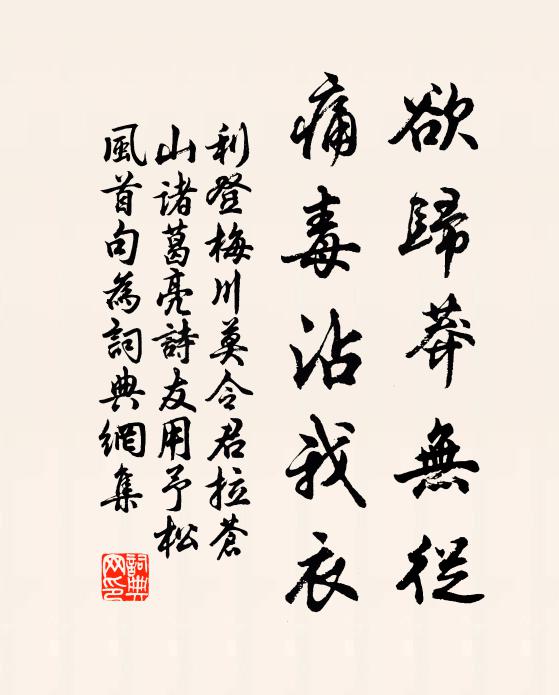 欲歸莽無從
痛毒沾我衣
利登梅川莫令君拉蒼
山諸葛亮詩友用予松
風首句為詞典網集
詞典网印